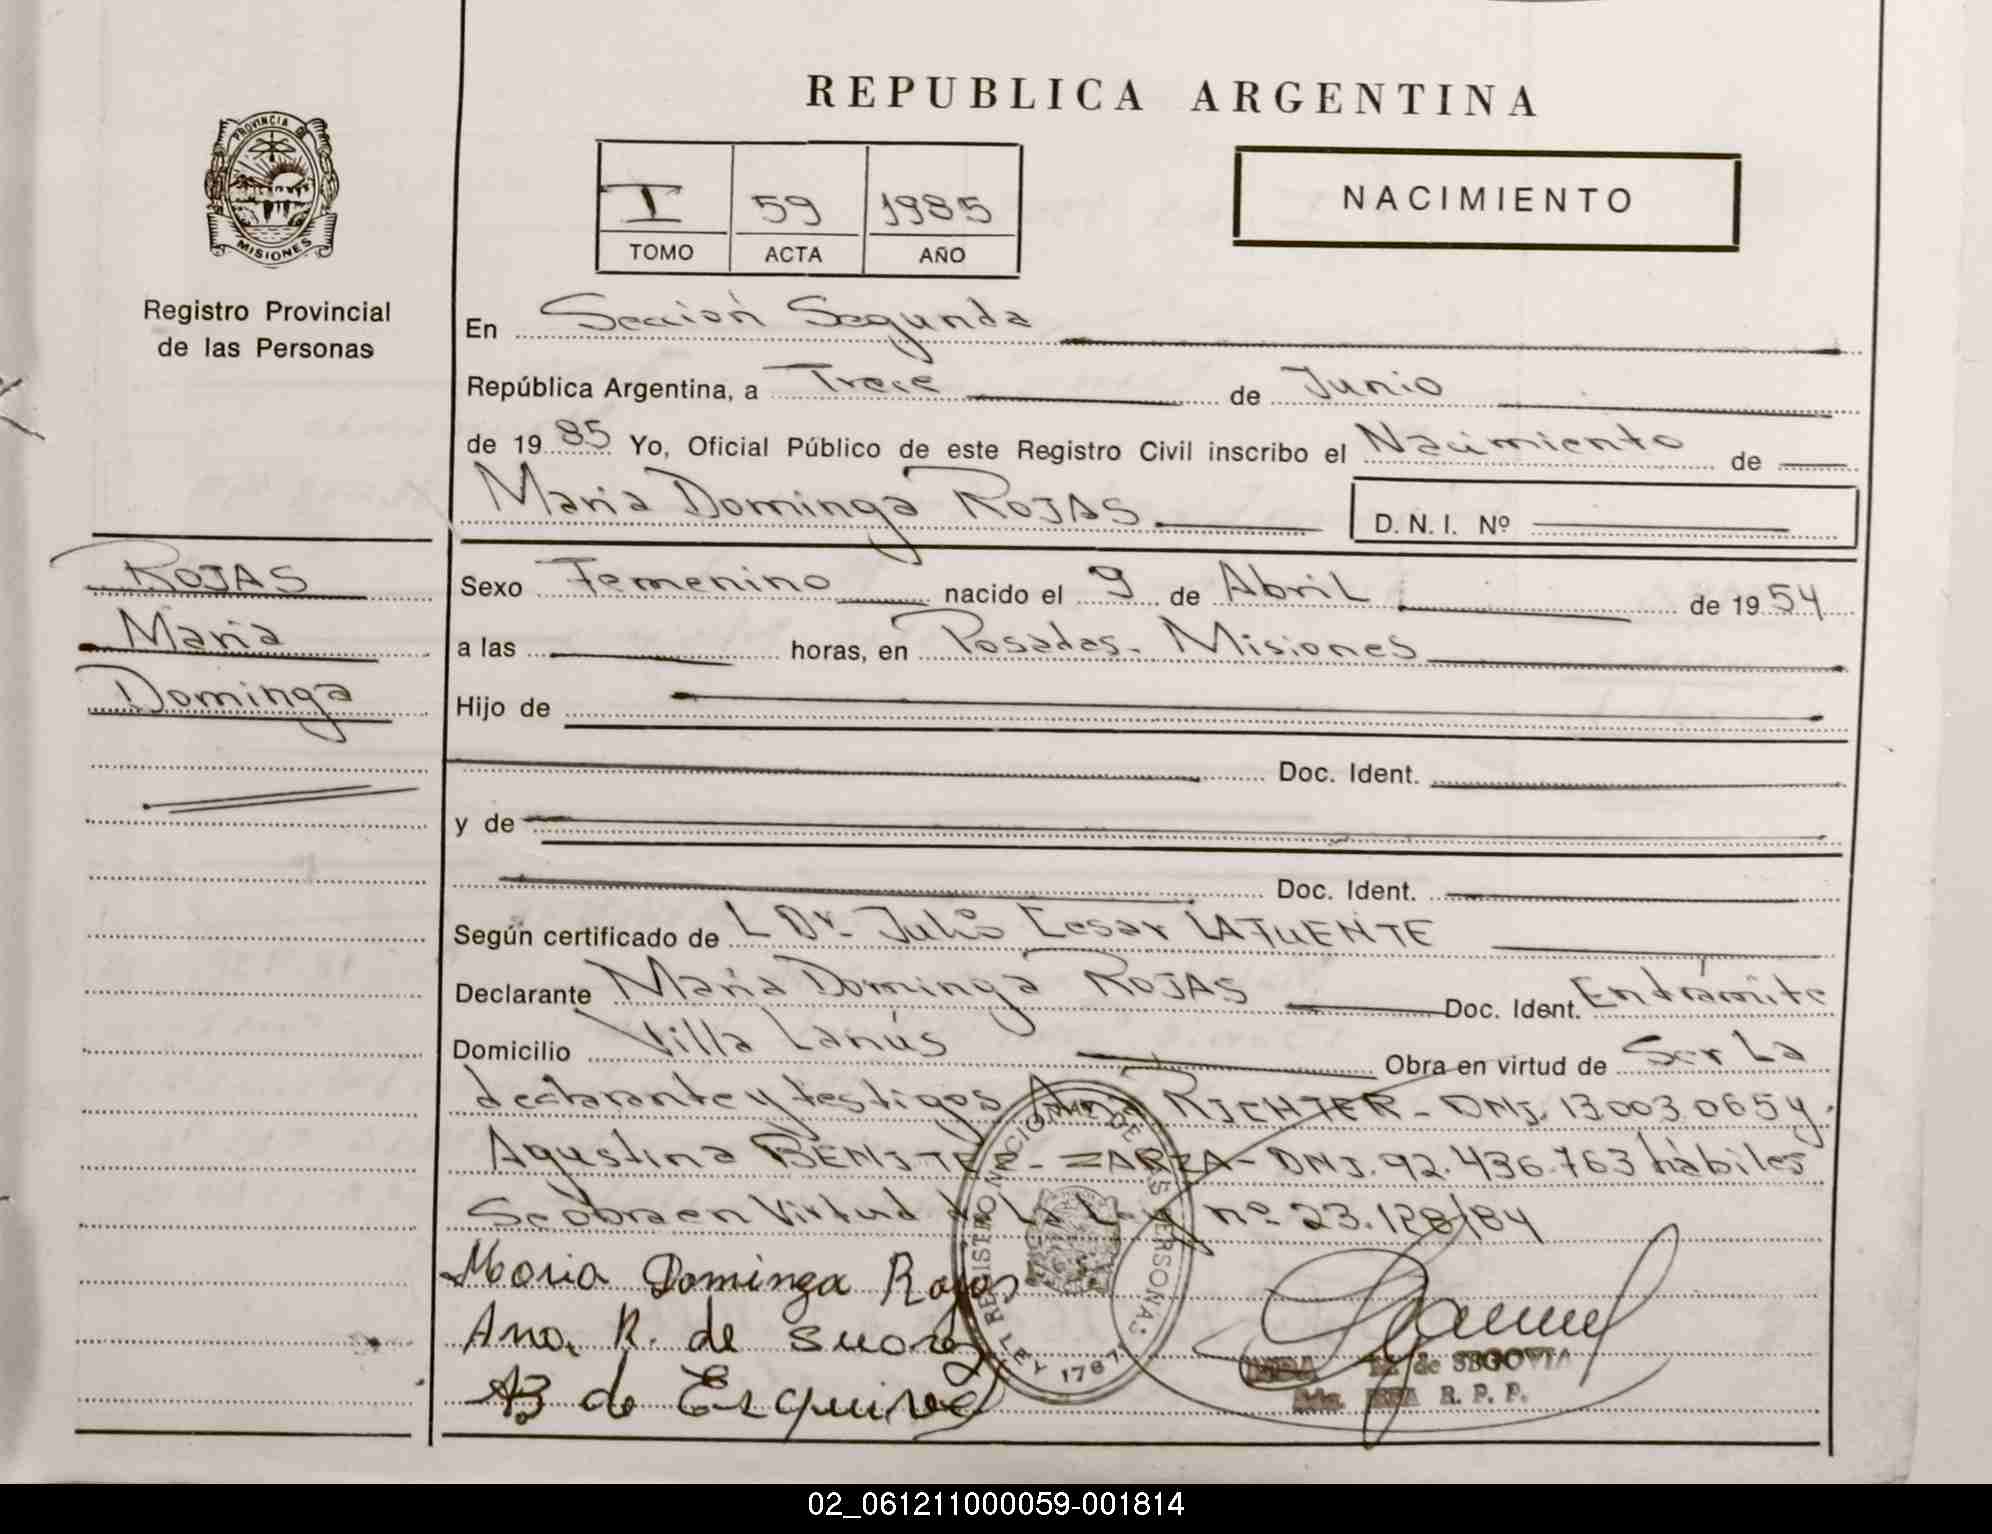 REPUBLICA ARGENTINA
PROVINCIA DE
MISIONES
Registro Provincial
de las Personas
I 59 1985
TOMO ACTA AÑO
NACIMIENTO
En Sección Segunda
República Argentina, a Trece de Junio
de 1985 Yo, Oficial Público de este Registro Civil inscribo el Nacimiento de
Maria Dominga ROJAS D. N. I. Nº
ROJAS
Maria
Dominga
Sexo Femenino nacido el 9 de Abril de 1954
a las horas, en Posadas - Misiones
Hijo de
Doc. Ident.
y de
Doc. Ident.
Según certificado de L Dr. Julio Cesar LAFUENTE
Declarante Maria Dominga ROJAS Doc. Ident. En trámite
Domicilio Villa Lanús Obra en virtud de Ser La
declarante y testigos Ana RICHTER - DNI. 13.003.065 y
Agustina BENITEZ - ZARZA - DNI. 92.436.763 hábiles
Se obra en Virtud de La Ley nº 23.128/84
Maria Dominga Rojas
Ana. R. de suarez
AB de Esquivel
REGISTRO NACIONAL DE LAS PERSONAS
LEY 1767
de SEGOVIA
R. P. P.
02_061211000059-001814